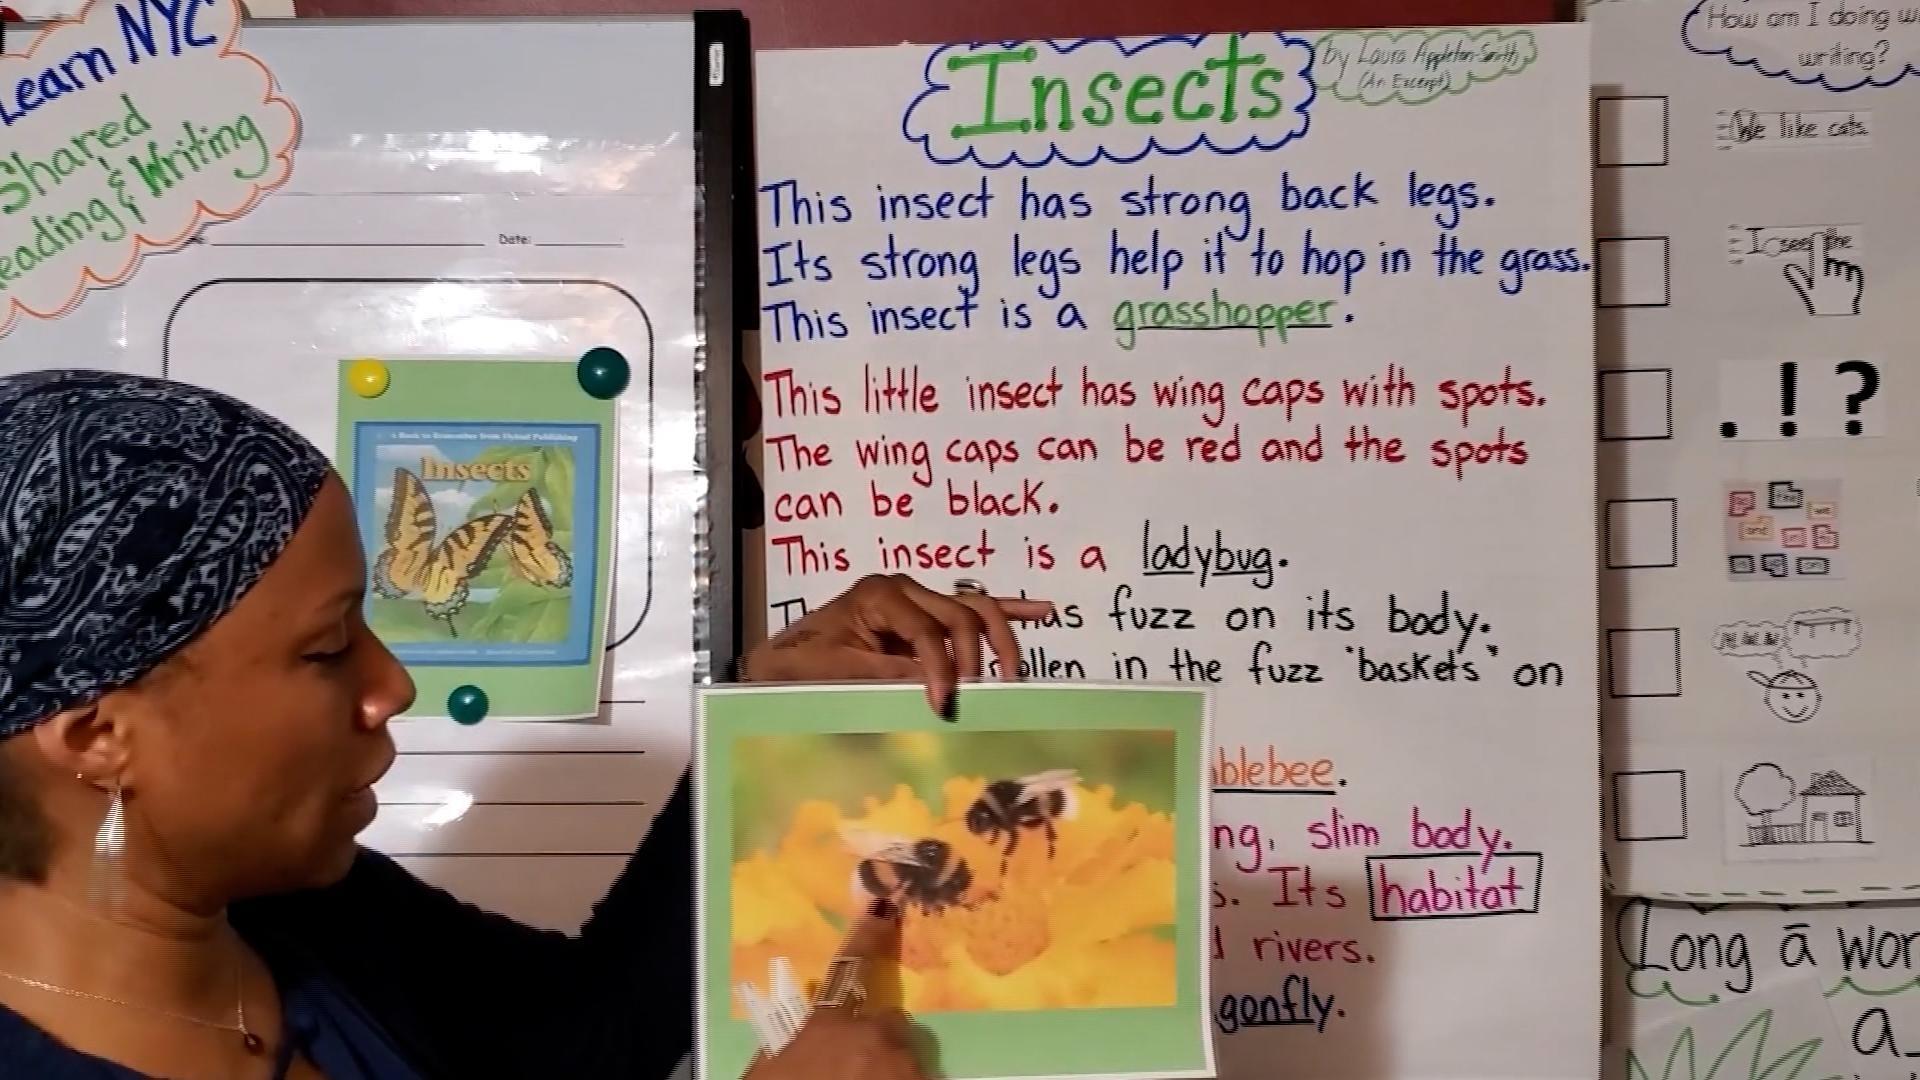 Learn NYC
Shared
eading & Writing
Date:
A Book to Remember from Flyleaf Publishing
Insects
Insects
by Laura Appleton-Smith
(An Excerpt)
This insect has strong back legs.
Its strong legs help it to hop in the grass.
This insect is a grasshopper.
This little insect has wing caps with spots.
The wing caps can be red and the spots
can be black.
This insect is a ladybug.
has fuzz on its body.
ollen in the fuzz "baskets" on
blebee.
ng, slim body.
s. Its habitat
rivers.
gonfly.
How am I doing w
writing?
We like cats.
I see the
. ! ?
Long ā wor
a_